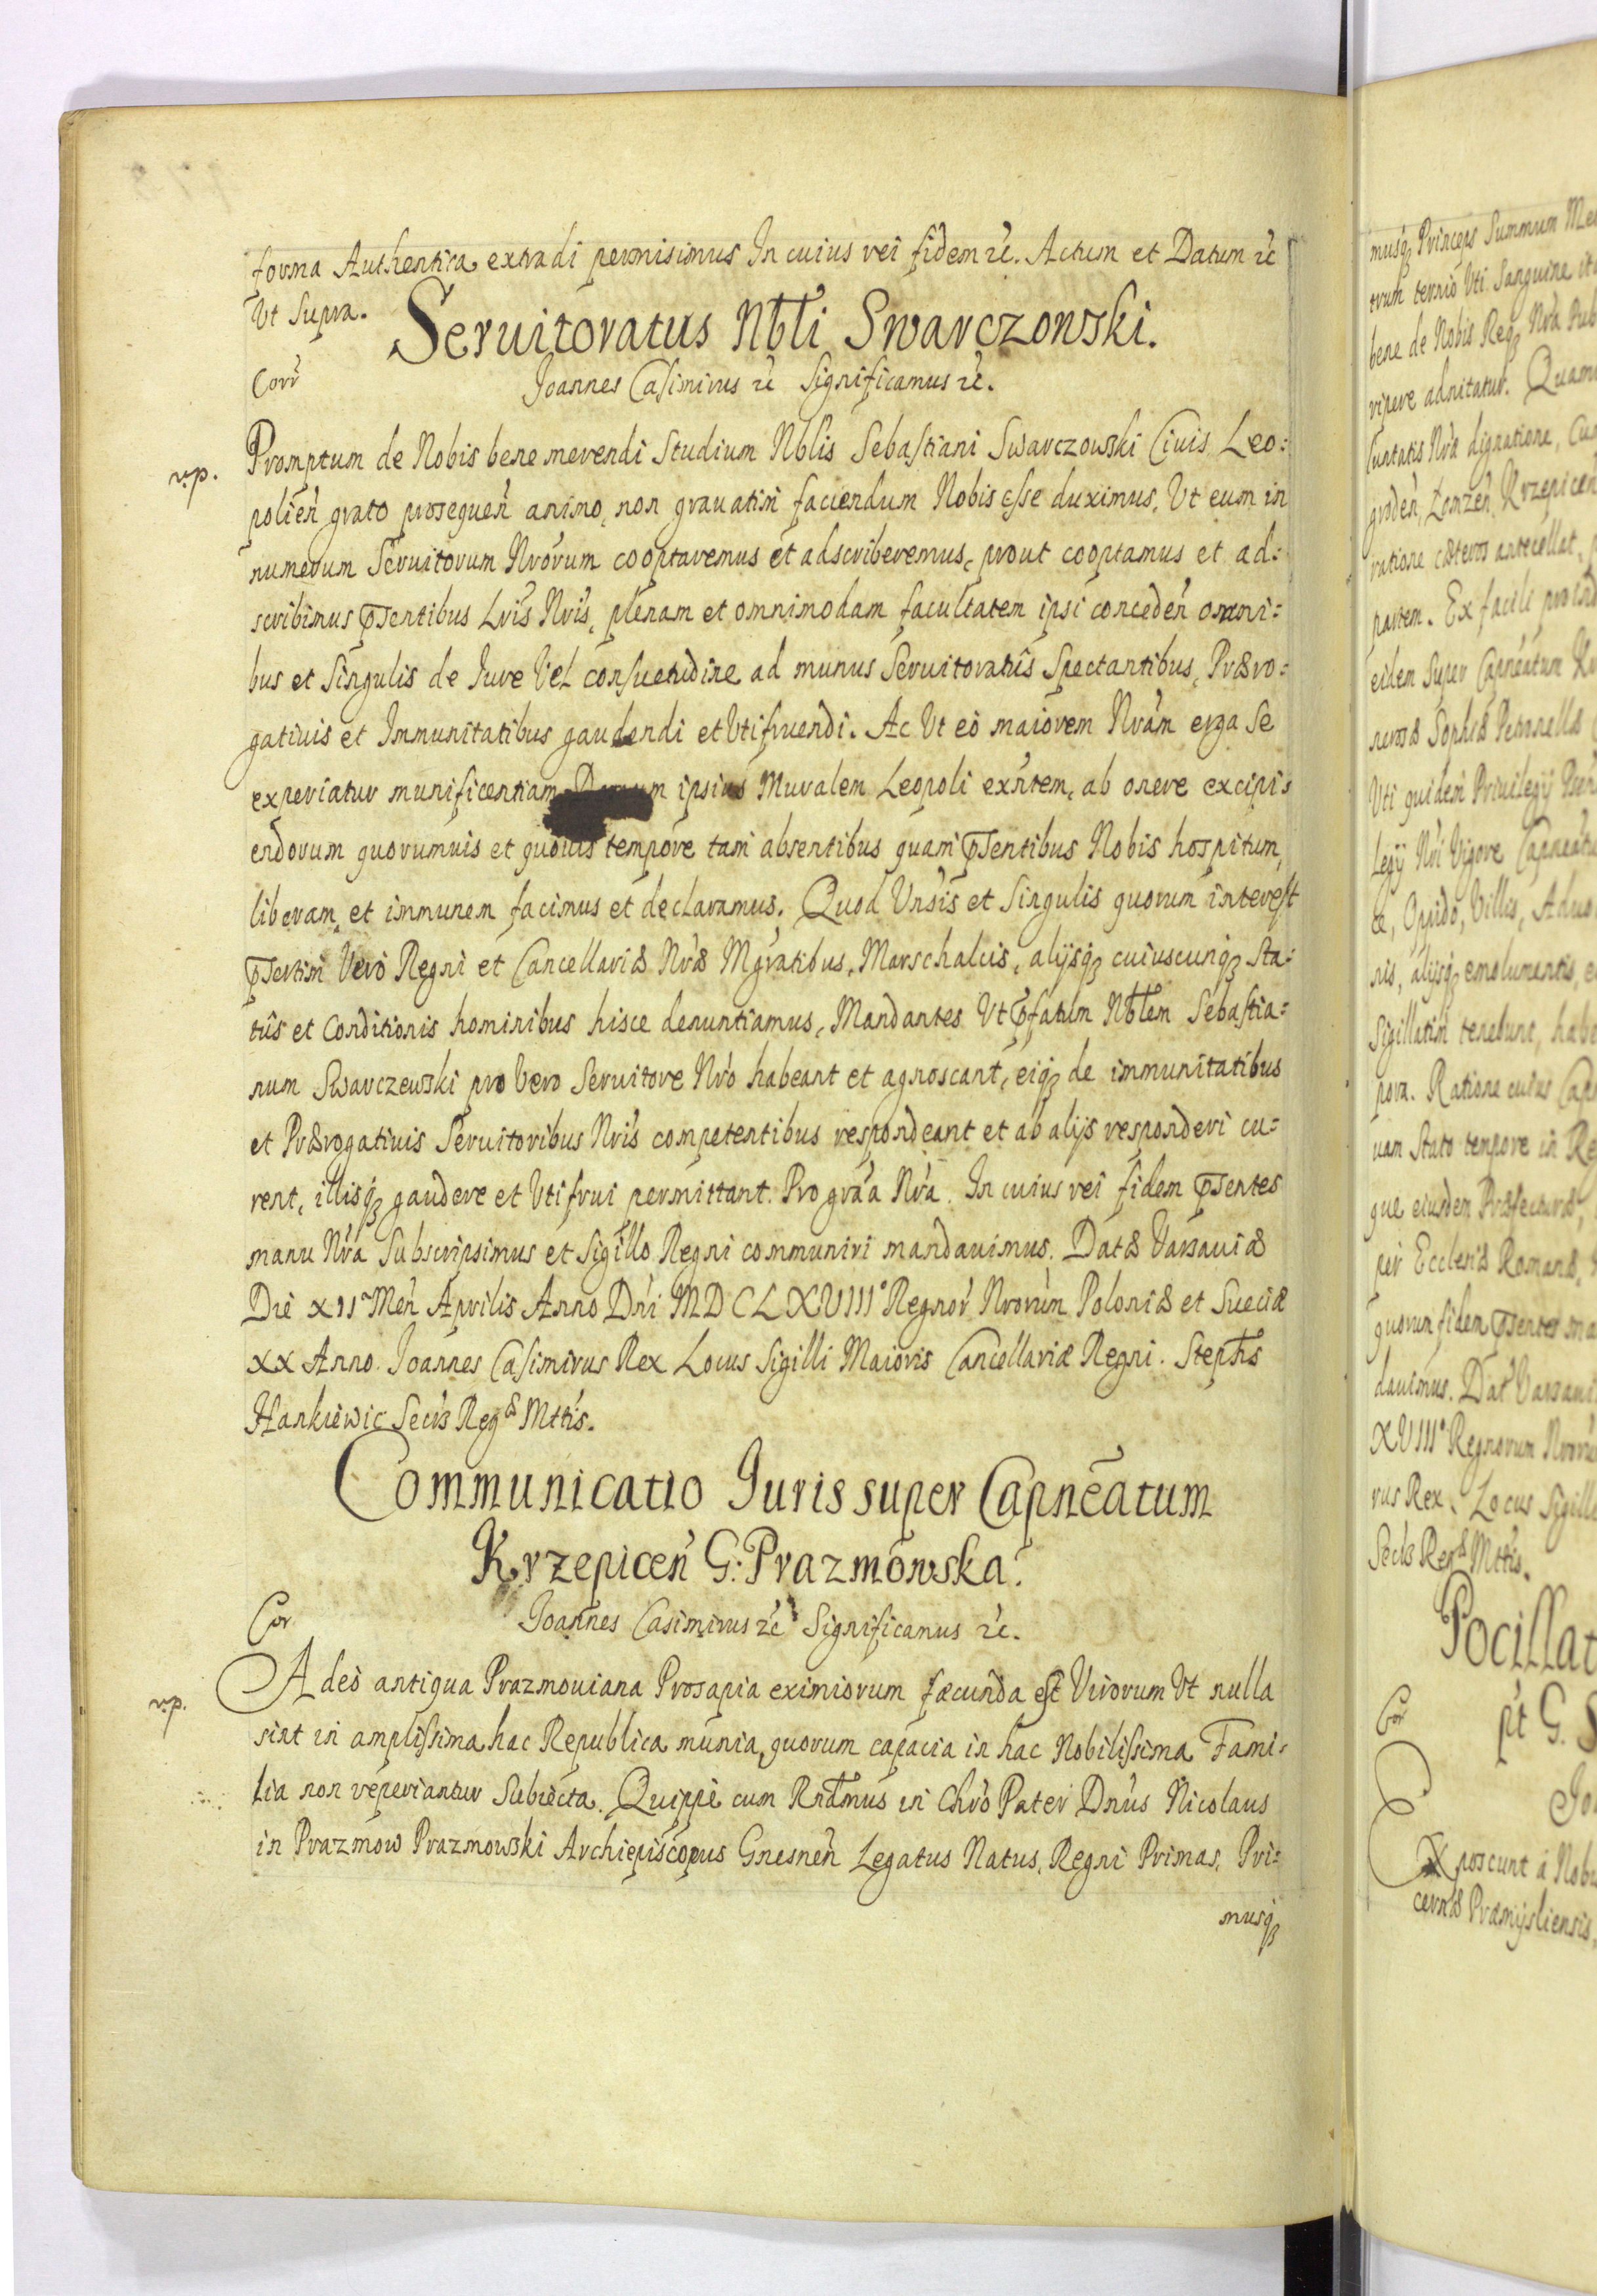 forma Authentica extradi permisimus In cuius rei fidem ꝛc. Actum et Datum ꝛc
Vt Supra.
Seruitoratus Nbli Swarczowski.
Corr
Joannes Casimirus ꝛc Significamus ꝛc.
rp.
Promptum de Nobis bene merendi Studium Nblis Sebastiani Swarczowski Ciuis Leo:
polień grato prosequeń animo, non grauatim faciendum Nobis esse duximus, Vt eum in
numerum Seruitorum Nrorum cooptaremus et adscriberemus, prout cooptamus et ad:
scribimus p̄sentibus Lris Nris, plenam et omnimodam facultatem ipsi concedeń omni:
bus et Singulis de Iure Vel consuetudine ad munus Seruitoratûs Spectantibus, Præro:
gatiuis et Immunitatibus gaudendi et Vtifruendi. Ac Vt eò maiorem Nram erga Se
experiatur munificentiam Domum ipsius Muralem Leopoli exńtem, ab onere excipi:
endorum quorumuis et quouis tempore tam absentibus quam p̄sentibus Nobis hospitum,
liberam et immunem facimus et declaramus. Quod Vnsis et Singulis quorum interest
p̄sertim Verò Regni et Cancellariæ Nræ Mgratibus, Marschalcis, alijsqꝫ cuiuscunqꝫ sta:
tûs et Conditionis hominibus hisce denuntiamus, Mandantes Vt p̄fatum Nblem Sebastia:
num Swarczewski pro Vero Seruitore Nro habeant et agnoscant, eiqꝫ de immunitatibus
et Prærogatiuis Seruitoribus Nris competentibus respondeant et ab alijs responderi cu:
rent, illisqꝫ gaudere et Vtifrui permittant. Pro gra'a Nra. In cuius rei fidem p̄sentes
manu Nra Subscripsimus et Sigillo Regni communiri mandauimus. Datæ Varsauiæ
Die XII Meń Aprilis Anno Dni MDCLXVIII° Regnor Nrorum Poloniæ et Sueciæ
XX Anno. Joannes Casimirus Rex Locus Sigilli Maioris Cancellariæ Regni. Stephs
Hankiewic Secrs Regæ Mttis.
Communicatio Juris super Capneatum
Krzepiceń G: Prazmowska.
Cor
Joannes Casimirus ꝛc Significamus ꝛc.
rp.
Adeò antiqua Prazmouiana Prosapia eximiorum fæcunda est Virorum Vt nulla
sint in amplissima hac Republica munia, quorum capacia in hac Nobilissima Fami:
lia non reperiantur Subiecta. Quippe cum Rndmus in Chro Pater Dnus Nicolaus
in Prazmow Prazmowski Archiepiscopus Gnesneń Legatus Natus, Regni Primas, Pri:
musqꝫ
musqꝫ Princeps Summum
trum ternio Vti Sanguine
bene de Nobis Reqꝫ Nra
ripere adnitatur.
dignatione,
grodeń, Lomzeń, Krzepiceń
ratione cæteros antecellat,
partem. Ex facili
eidem Super Capneatum
Sophiæ Petronellæ
Vti quidem Priuilegij
Legij Nri Vigore
Oppido, Villis,
nis, alijsqꝫ emolumentis,
Sigillatim tenebunt,
pora. Ratione cuius
uam Stato tempore in
que eiusdem Præfecturæ,
per Ecclesiæ Romanæ,
quorum fidem p̄sentes
dauimus. Dat
XVIII° Regnorum
rus Rex. Locus
Secrs Regæ Mttis.
Cor
poscunt à